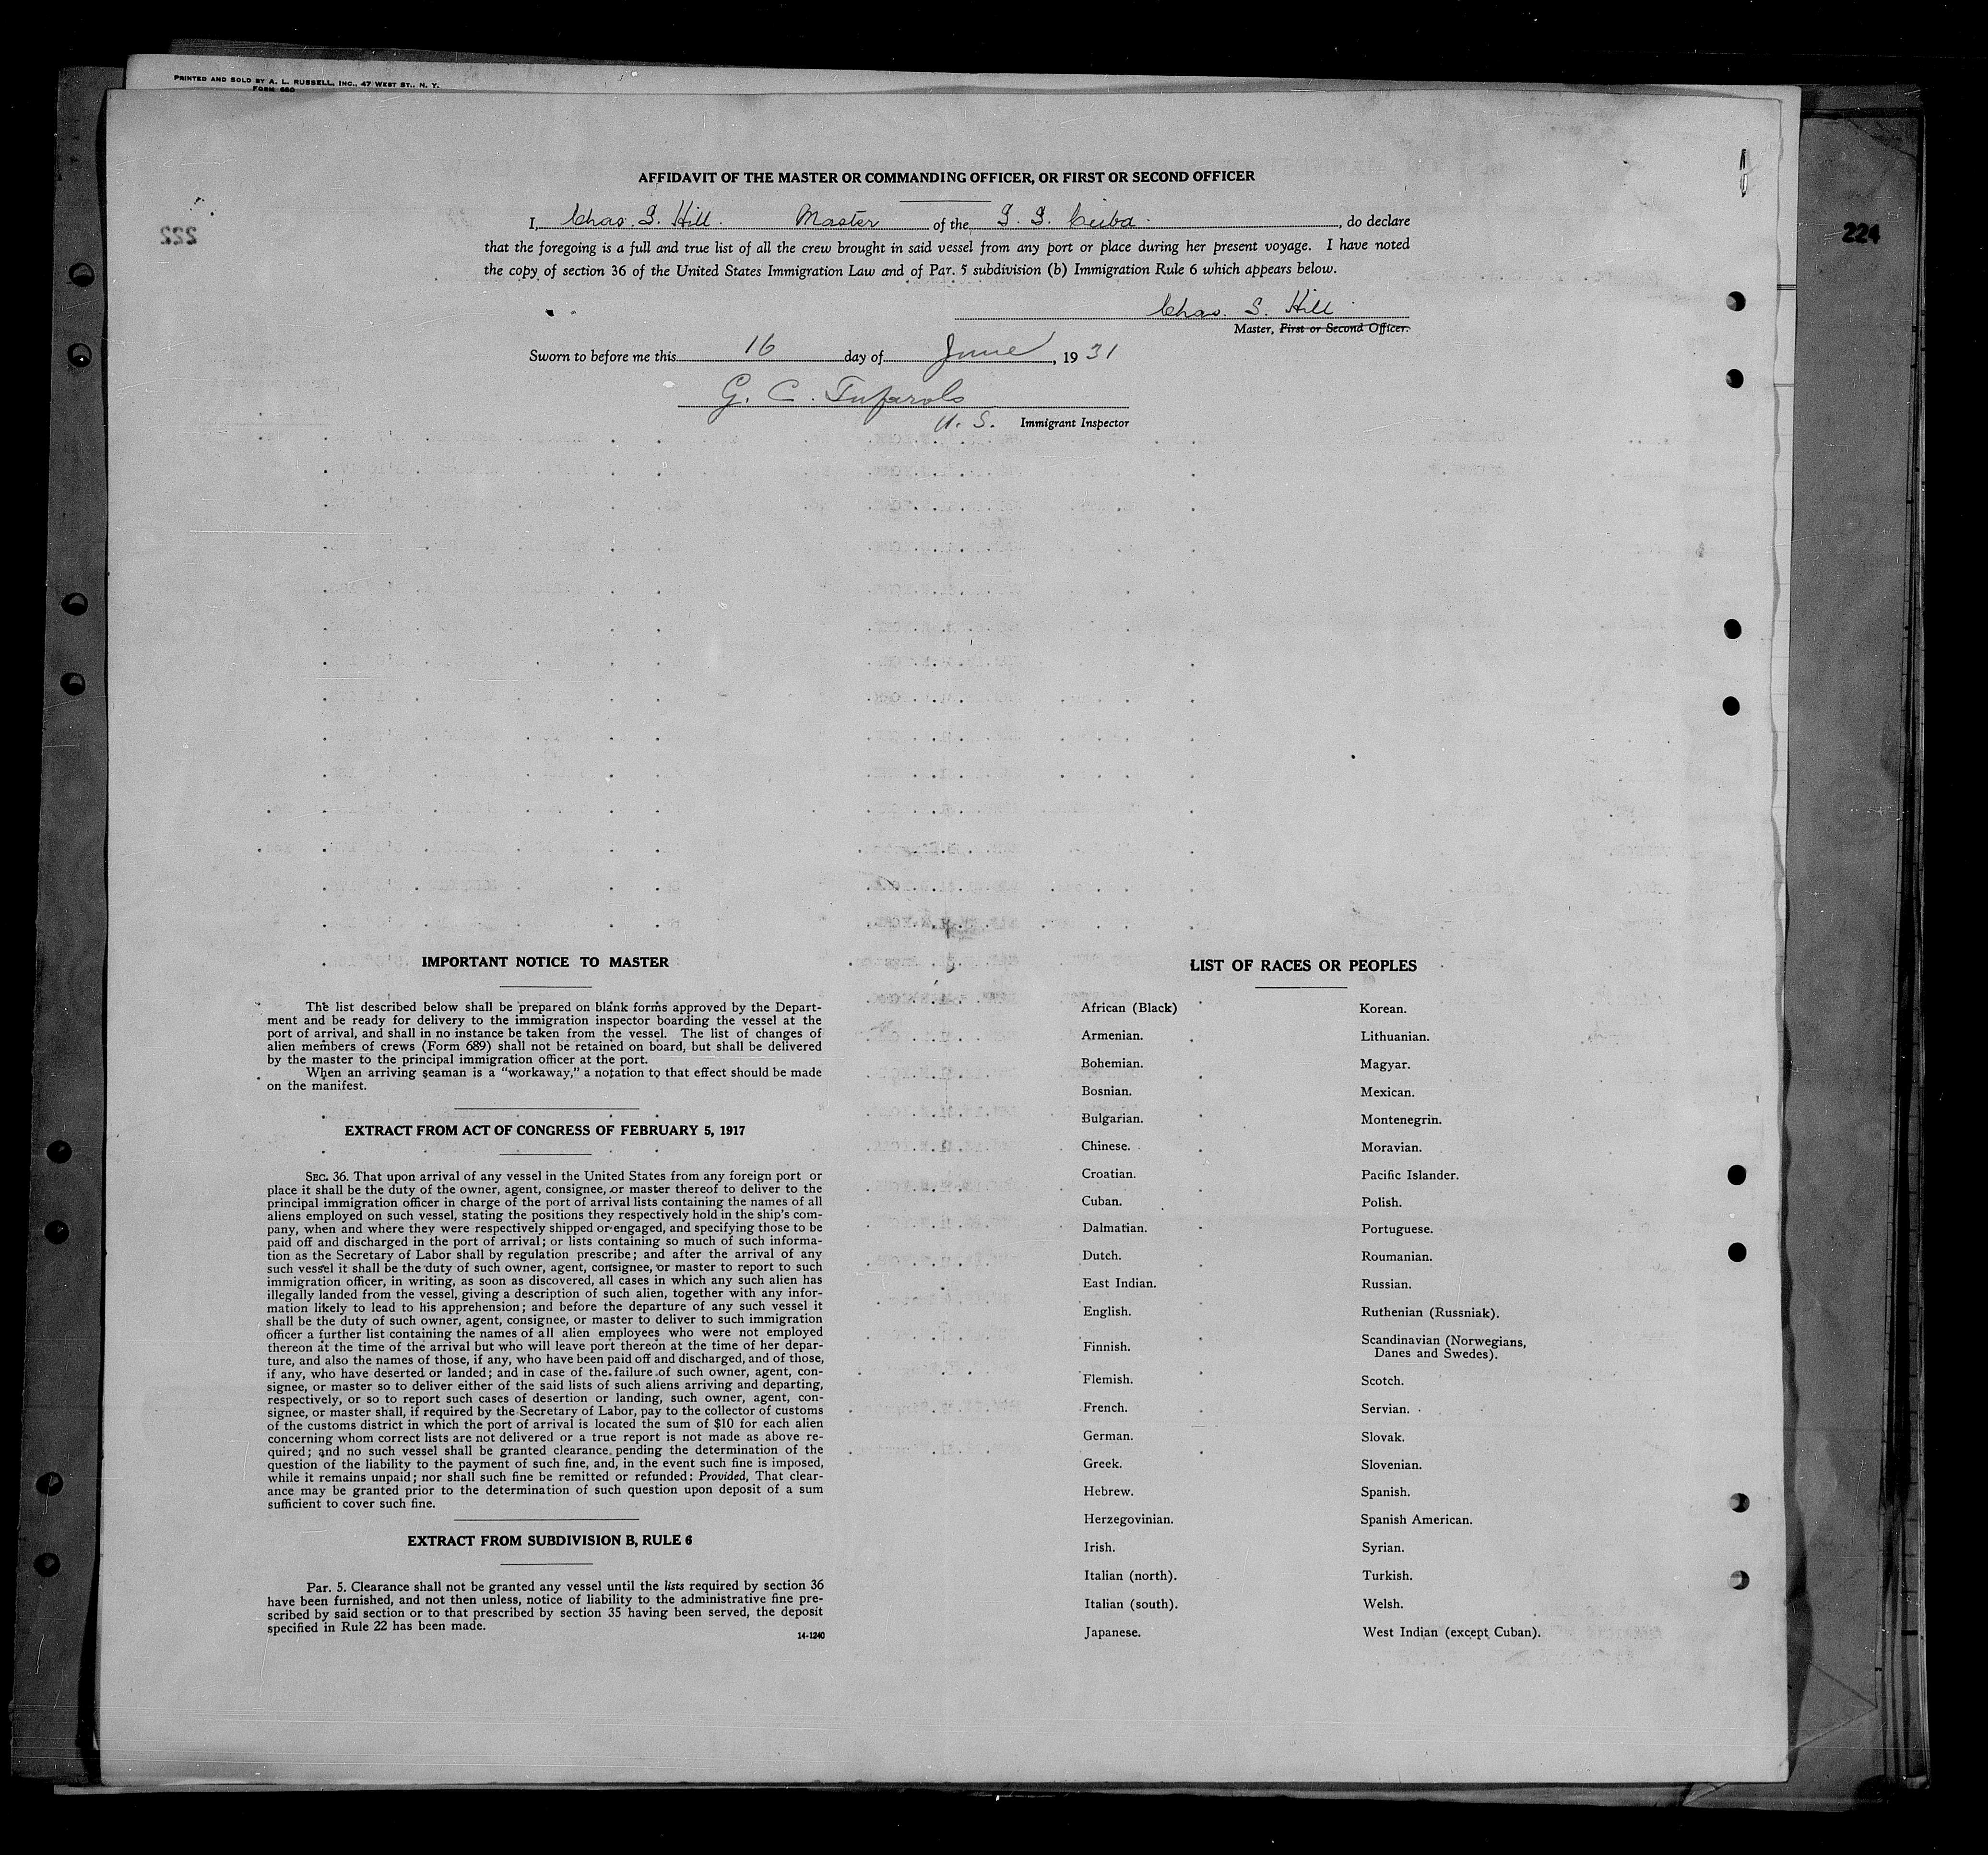 PRINTED AND SOLD BY A. L. RUSSELL, INC., 47 WEST ST., N. Y.
FORM 680
AFFIDAVIT OF THE MASTER OR COMMANDING OFFICER, OR FIRST OR SECOND OFFICER
I, Chas. S. Hill. Master of the S. S. Cuba. , do declare
222
224
that the foregoing is a full and true list of all the crew brought in said vessel from any port or place during her present voyage. I have noted
the copy of section 36 of the United States Immigration Law and of Par. 5 subdivision (b) Immigration Rule 6 which appears below.
Chas. S. Hill
Master, First or Second Officer.
Sworn to before me this 16 day of June, 1931
G. C.
U. S. Immigrant Inspector
IMPORTANT NOTICE TO MASTER
The list described below shall be prepared on blank forms approved by the Depart-
ment and be ready for delivery to the immigration inspector boarding the vessel at the
port of arrival, and shall in no instance be taken from the vessel. The list of changes of
alien members of crews (Form 689) shall not be retained on board, but shall be delivered
by the master to the principal immigration officer at the port.
When an arriving seaman is a “workaway,” a notation to that effect should be made
on the manifest.
EXTRACT FROM ACT OF CONGRESS OF FEBRUARY 5, 1917
SEC. 36. That upon arrival of any vessel in the United States from any foreign port or
place it shall be the duty of the owner, agent, consignee, or master thereof to deliver to the
principal immigration officer in charge of the port of arrival lists containing the names of all
aliens employed on such vessel, stating the positions they respectively hold in the ship's com-
pany, when and where they were respectively shipped or engaged, and specifying those to be
paid off and discharged in the port of arrival; or lists containing so much of such informa-
tion as the Secretary of Labor shall by regulation prescribe; and after the arrival of any
such vessel it shall be the duty of such owner, agent, consignee, or master to report to such
immigration officer, in writing, as soon as discovered, all cases in which any such alien has
illegally landed from the vessel, giving a description of such alien, together with any infor-
mation likely to lead to his apprehension; and before the departure of any such vessel it
shall be the duty of such owner, agent, consignee, or master to deliver to such immigration
officer a further list containing the names of all alien employees who were not employed
thereon at the time of the arrival but who will leave port thereon at the time of her depar-
ture, and also the names of those, if any, who have been paid off and discharged, and of those,
if any, who have deserted or landed; and in case of the failure of such owner, agent, con-
signee, or master so to deliver either of the said lists of such aliens arriving and departing,
respectively, or so to report such cases of desertion or landing, such owner, agent, con-
signee, or master shall, if required by the Secretary of Labor, pay to the collector of customs
of the customs district in which the port of arrival is located the sum of $10 for each alien
concerning whom correct lists are not delivered or a true report is not made as above re-
quired; and no such vessel shall be granted clearance pending the determination of the
question of the liability to the payment of such fine, and, in the event such fine is imposed,
while it remains unpaid; nor shall such fine be remitted or refunded: Provided, That clear-
ance may be granted prior to the determination of such question upon deposit of a sum
sufficient to cover such fine.
EXTRACT FROM SUBDIVISION B, RULE 6
Par. 5. Clearance shall not be granted any vessel until the lists required by section 36
have been furnished, and not then unless, notice of liability to the administrative fine pre-
scribed by said section or to that prescribed by section 35 having been served, the deposit
specified in Rule 22 has been made.
14-1240
LIST OF RACES OR PEOPLES
African (Black)
Armenian.
Bohemian.
Bosnian.
Bulgarian.
Chinese.
Croatian.
Cuban.
Dalmatian.
Dutch.
East Indian.
English.
Finnish.
Flemish.
French.
German.
Greek.
Hebrew.
Herzegovinian.
Irish.
Italian (north).
Italian (south).
Japanese.
Korean.
Lithuanian.
Magyar.
Mexican.
Montenegrin.
Moravian.
Pacific Islander.
Polish.
Portuguese.
Roumanian.
Russian.
Ruthenian (Russniak).
Scandinavian (Norwegians,
Danes and Swedes).
Scotch.
Servian.
Slovak.
Slovenian.
Spanish.
Spanish American.
Syrian.
Turkish.
Welsh.
West Indian (except Cuban).